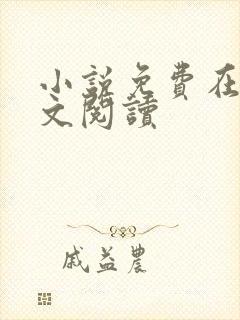 小説免費在
文閱讀
戚益農